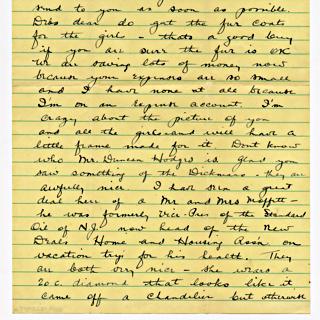 send to you as soon as possible.
Dibs dear do get the fur coats
for the girls - thats a good buy
if you are sure the fur is OK
We are saving lots of money now
because your expenses are so small
and I have none at all because
I'm on an expense account. I'm
crazy about the picture of you
and all the girls and will have a
little frame made for it. Dont know
who Mr. Duncan Hodges is glad you
saw something of the Dickmans - they are
awfully nice. I have seen a great
deal here of a Mr and Mrs Moffett -
he was formerly Vice-Pres of the Standard
Oil of N.J. now head of the New
Deals Home and Housing Assn. on
vacation trip for his health. They
are both very nice - she wears a
20 c. diamond that looks like it
came off a chandelier but otherwise